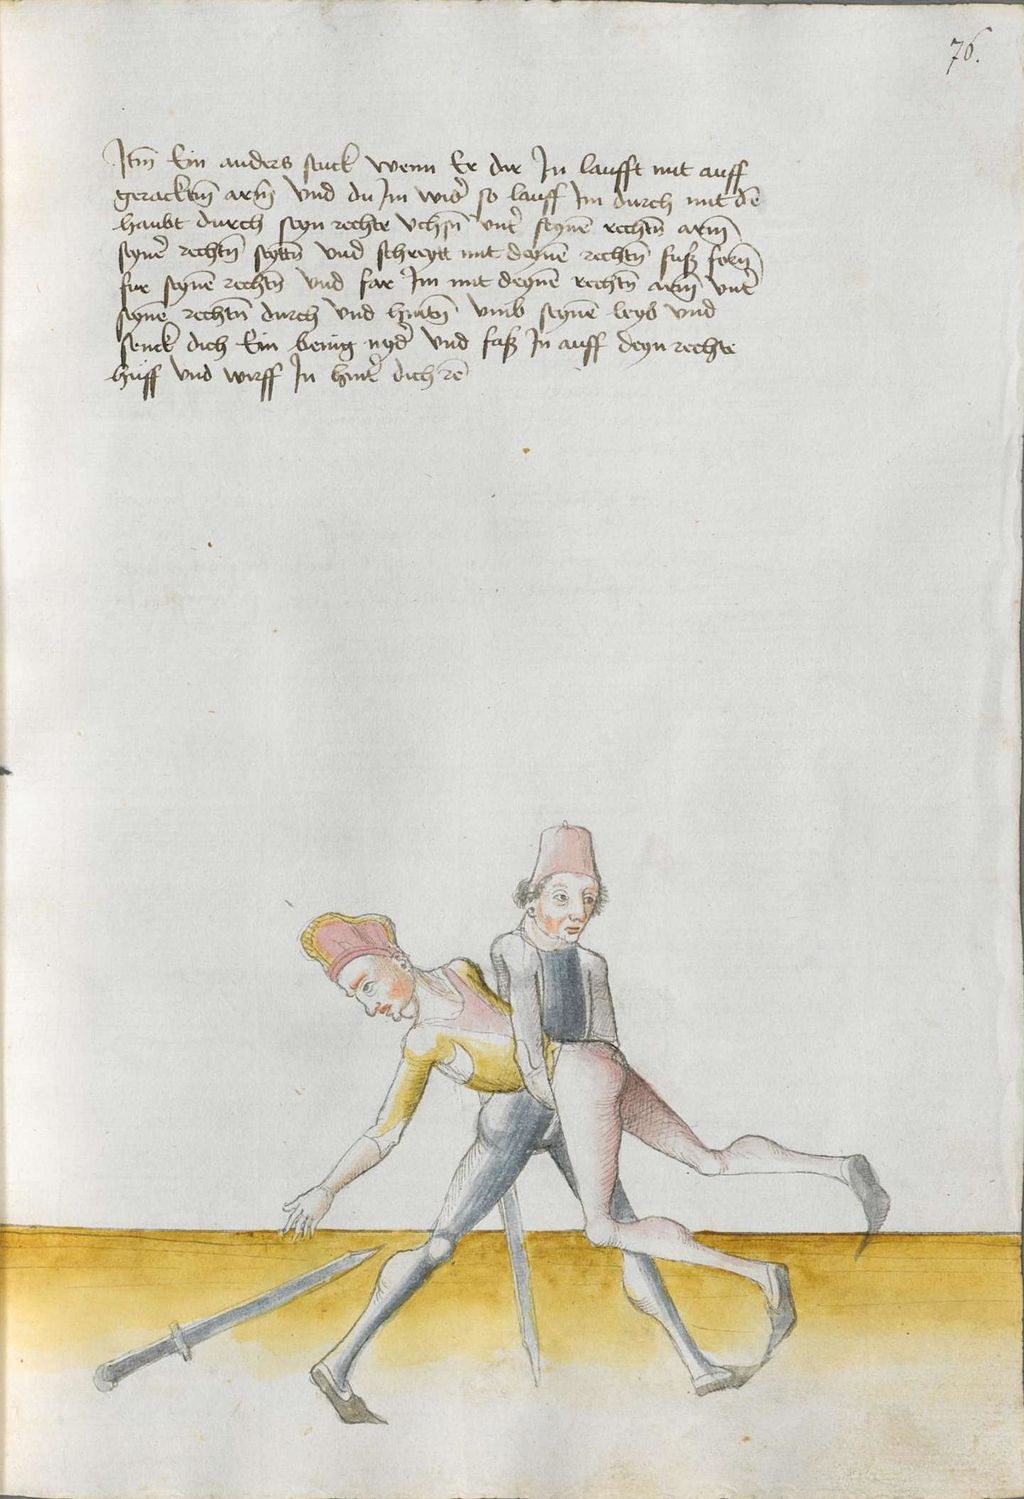 76.
Itm̄ Ein anders stuck wenn Er dir In laufft mit auff
gerackten̄ arm̄ Vnd du Im wid̄ so lauff Im durch mit dē
haubt durch seyn rechte Vchsn̄ vnt̄ seynē rechtn̄ arm̄
seynē rechtn̄ seyttn̄ Vnd schreytt mit deynē rechtn̄ fuß forn̄
fur seynē rechtn̄ Vnd far Im mit deynē rechtn̄ arm̄ vnt̄
seynē rechtn̄ durch Vnd hintn̄ vmb seynē leyb Vnd
senck dich Ein wenig nyd̄ Vnd faß In auff deyn rechte
huff Vnd wirff In hint̄ dich